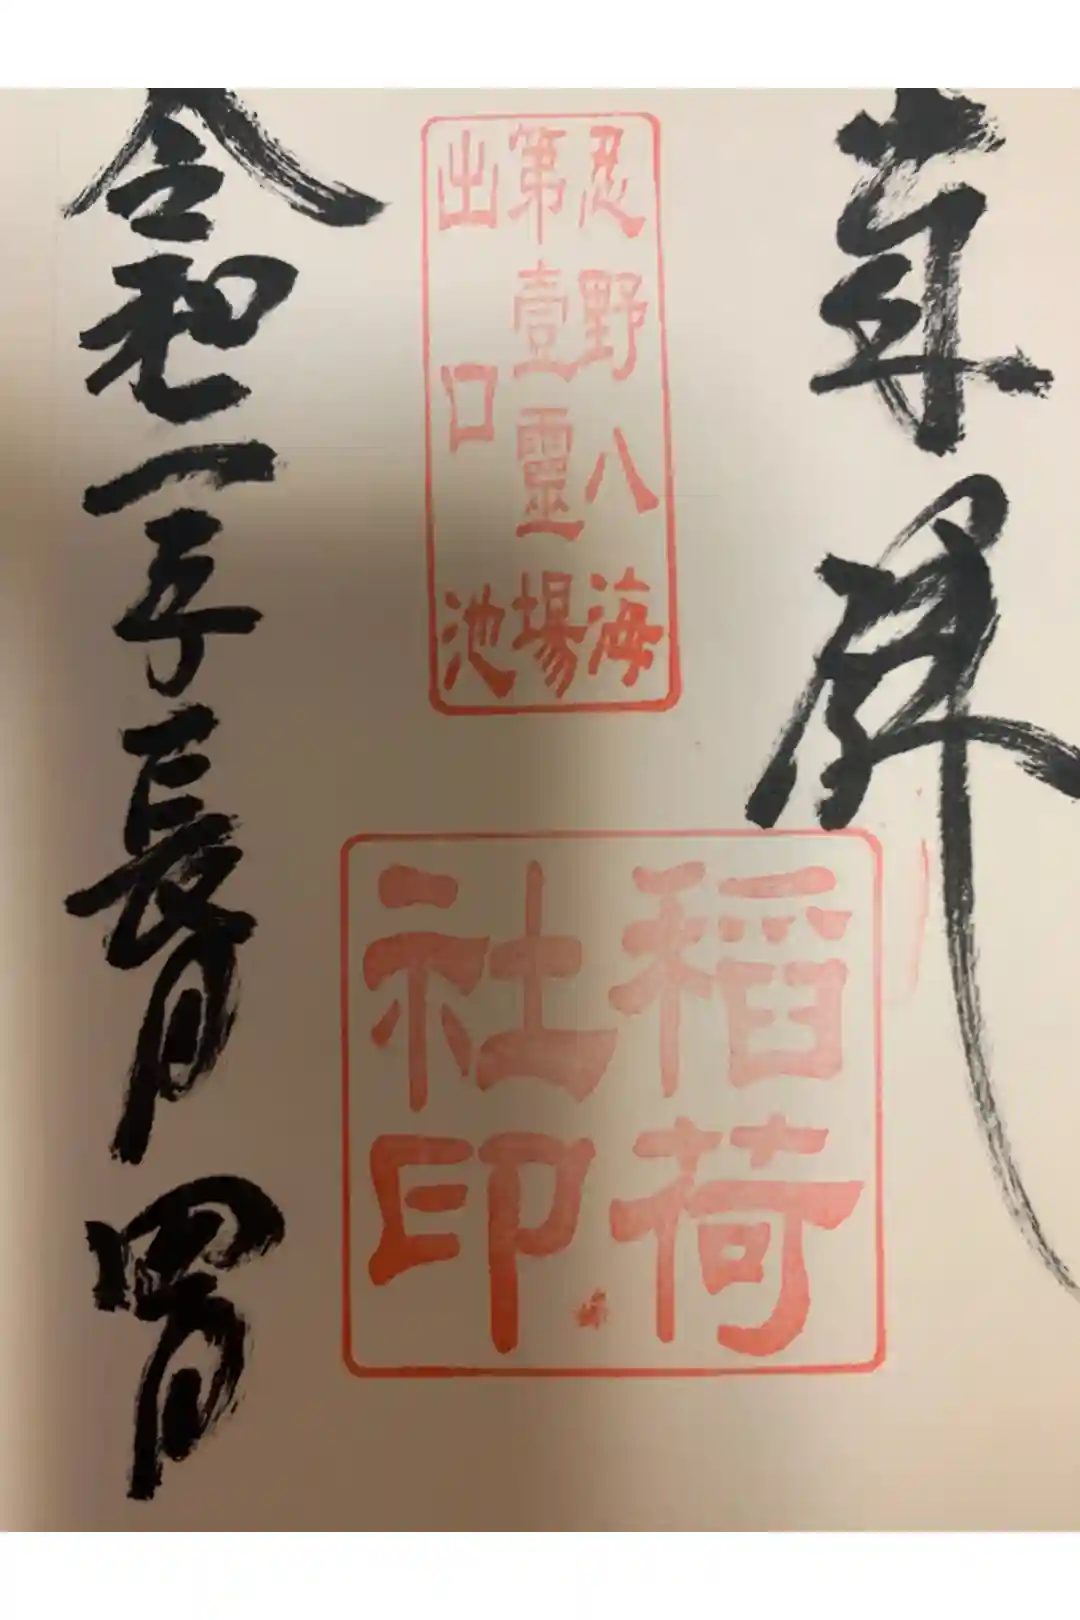 奉拝
忍野八海
第壹靈場
出口池
稻荷
社印
令和 年長月